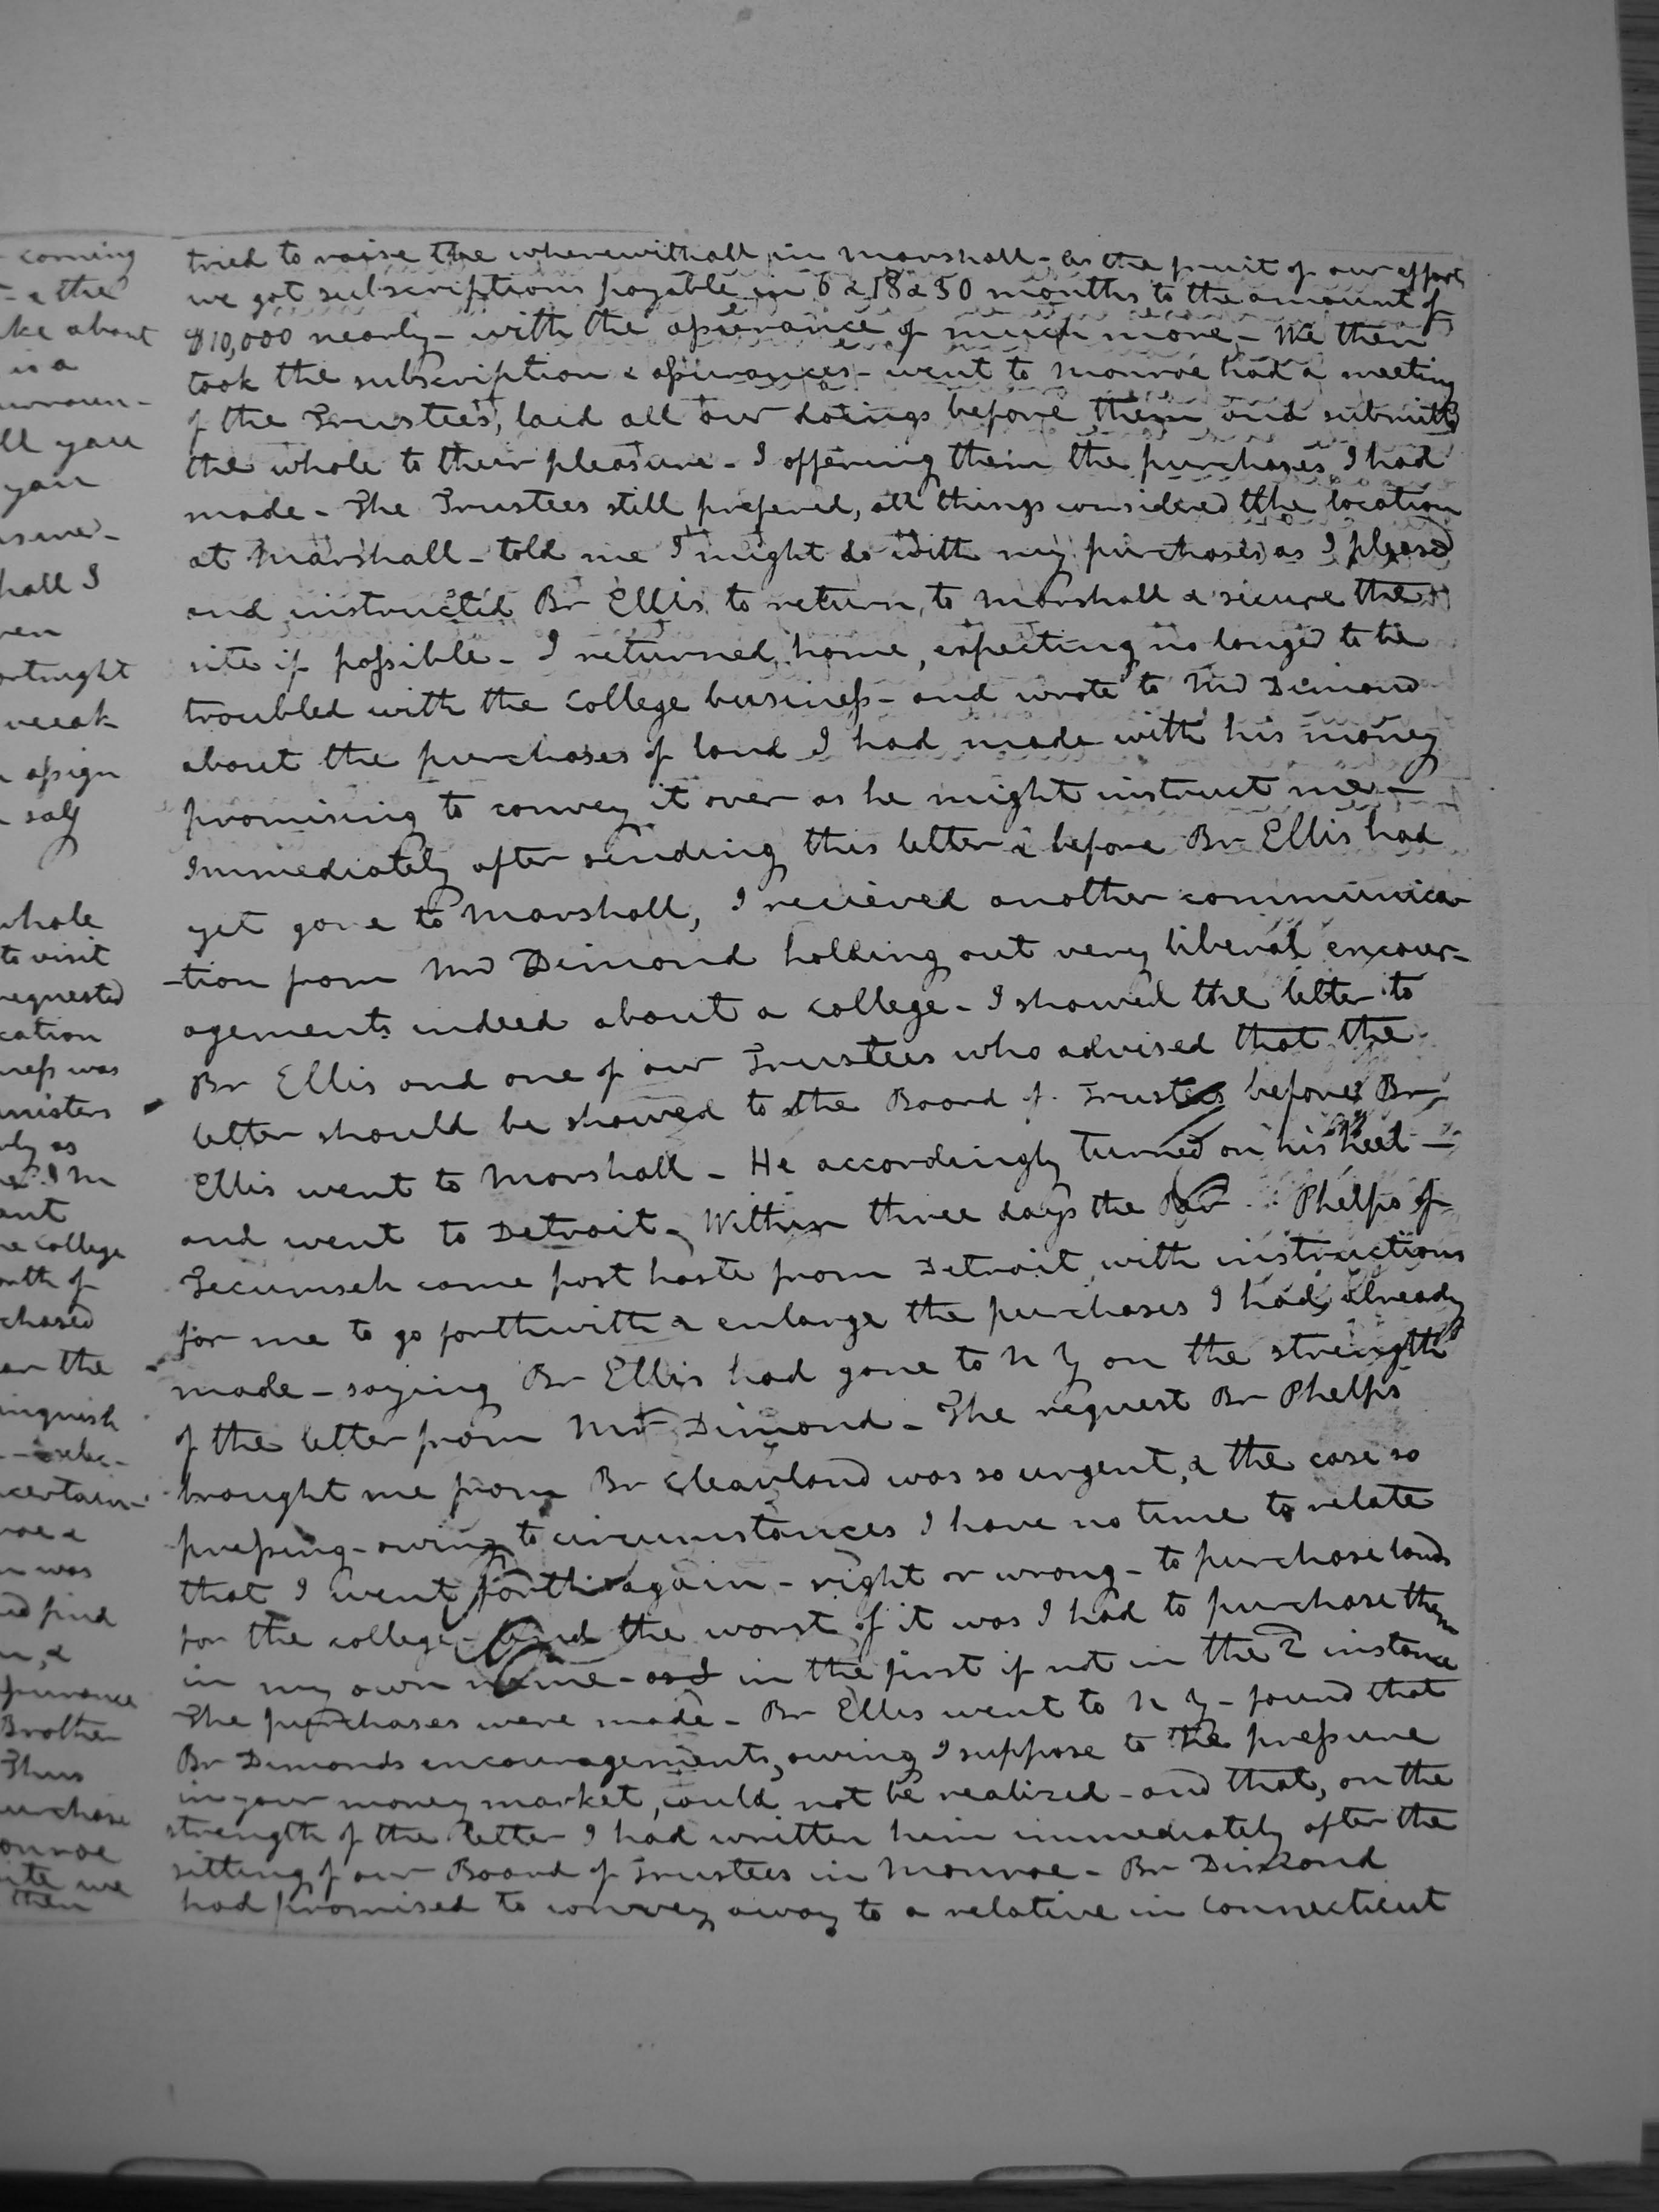 tried to raise the wherewithall in Marshall - As the fruit of our effort
we got subscriptions payable in 6 & 18 & 30 months to the amount of
$10,000 nearly - with the assurance of much more - We then
took the subscription & assurances - went to Monroe had a meeting
of the Trustees, laid all our doings before them and submitted
the whole to their pleasure - I offering them the purchases I had
made - The Trustees still prefered, all things considered the location
at Marshall - told me I might do with my purchases as I pleased
and instructed Br Ellis to return to Marshall & secure the
site if possible - I returned home, expecting no longer to be
troubled with the College business - and wrote to Mr Dimond
about the purchases of land I had made with his money
promising to convey it over as he might instruct me -
Immediately after sending this letter & before Br Ellis had
yet gone to Marshall, I recieved another communica
-tion from Mr Dimond holding out very liberal encour-
agements indeed about a college - I showed the letter to
Br Ellis and one of our Trustees who advised that the
letter should be showed to the Board of Trustees before Br
Ellis went to Marshall - He accordingly turned on his heel -
and went to Detroit - Within three days the Rev Phelps of
Tecumseh came post haste from Detroit with instructions
for me to go forthwith & enlarge the purchases I had already
made - saying Br Ellis had gone to N Y on the strength
of the letter from Mr Dimond - The request Br Phelps
brought me from Br Cleaveland was so urgent, & the case so
pressing - owing to circumstances I have no time to relate
that I went forth again - right or wrong - to purchase lands
for the college - And the worst of it was I had to purchase them
in my own name - as I in the first if not in the 2 instance
The purchases were made - Br Ellis went to N Y - found that
Br Dimonds encouragements, owing I suppose to the pressure
in your money market, could not be realized - and that, on the
strength of the letter I had written him immediately after the
sitting of our Board of Trustees in Monroe - Br Dimond
had promised to convey away to a relative in Connecticut